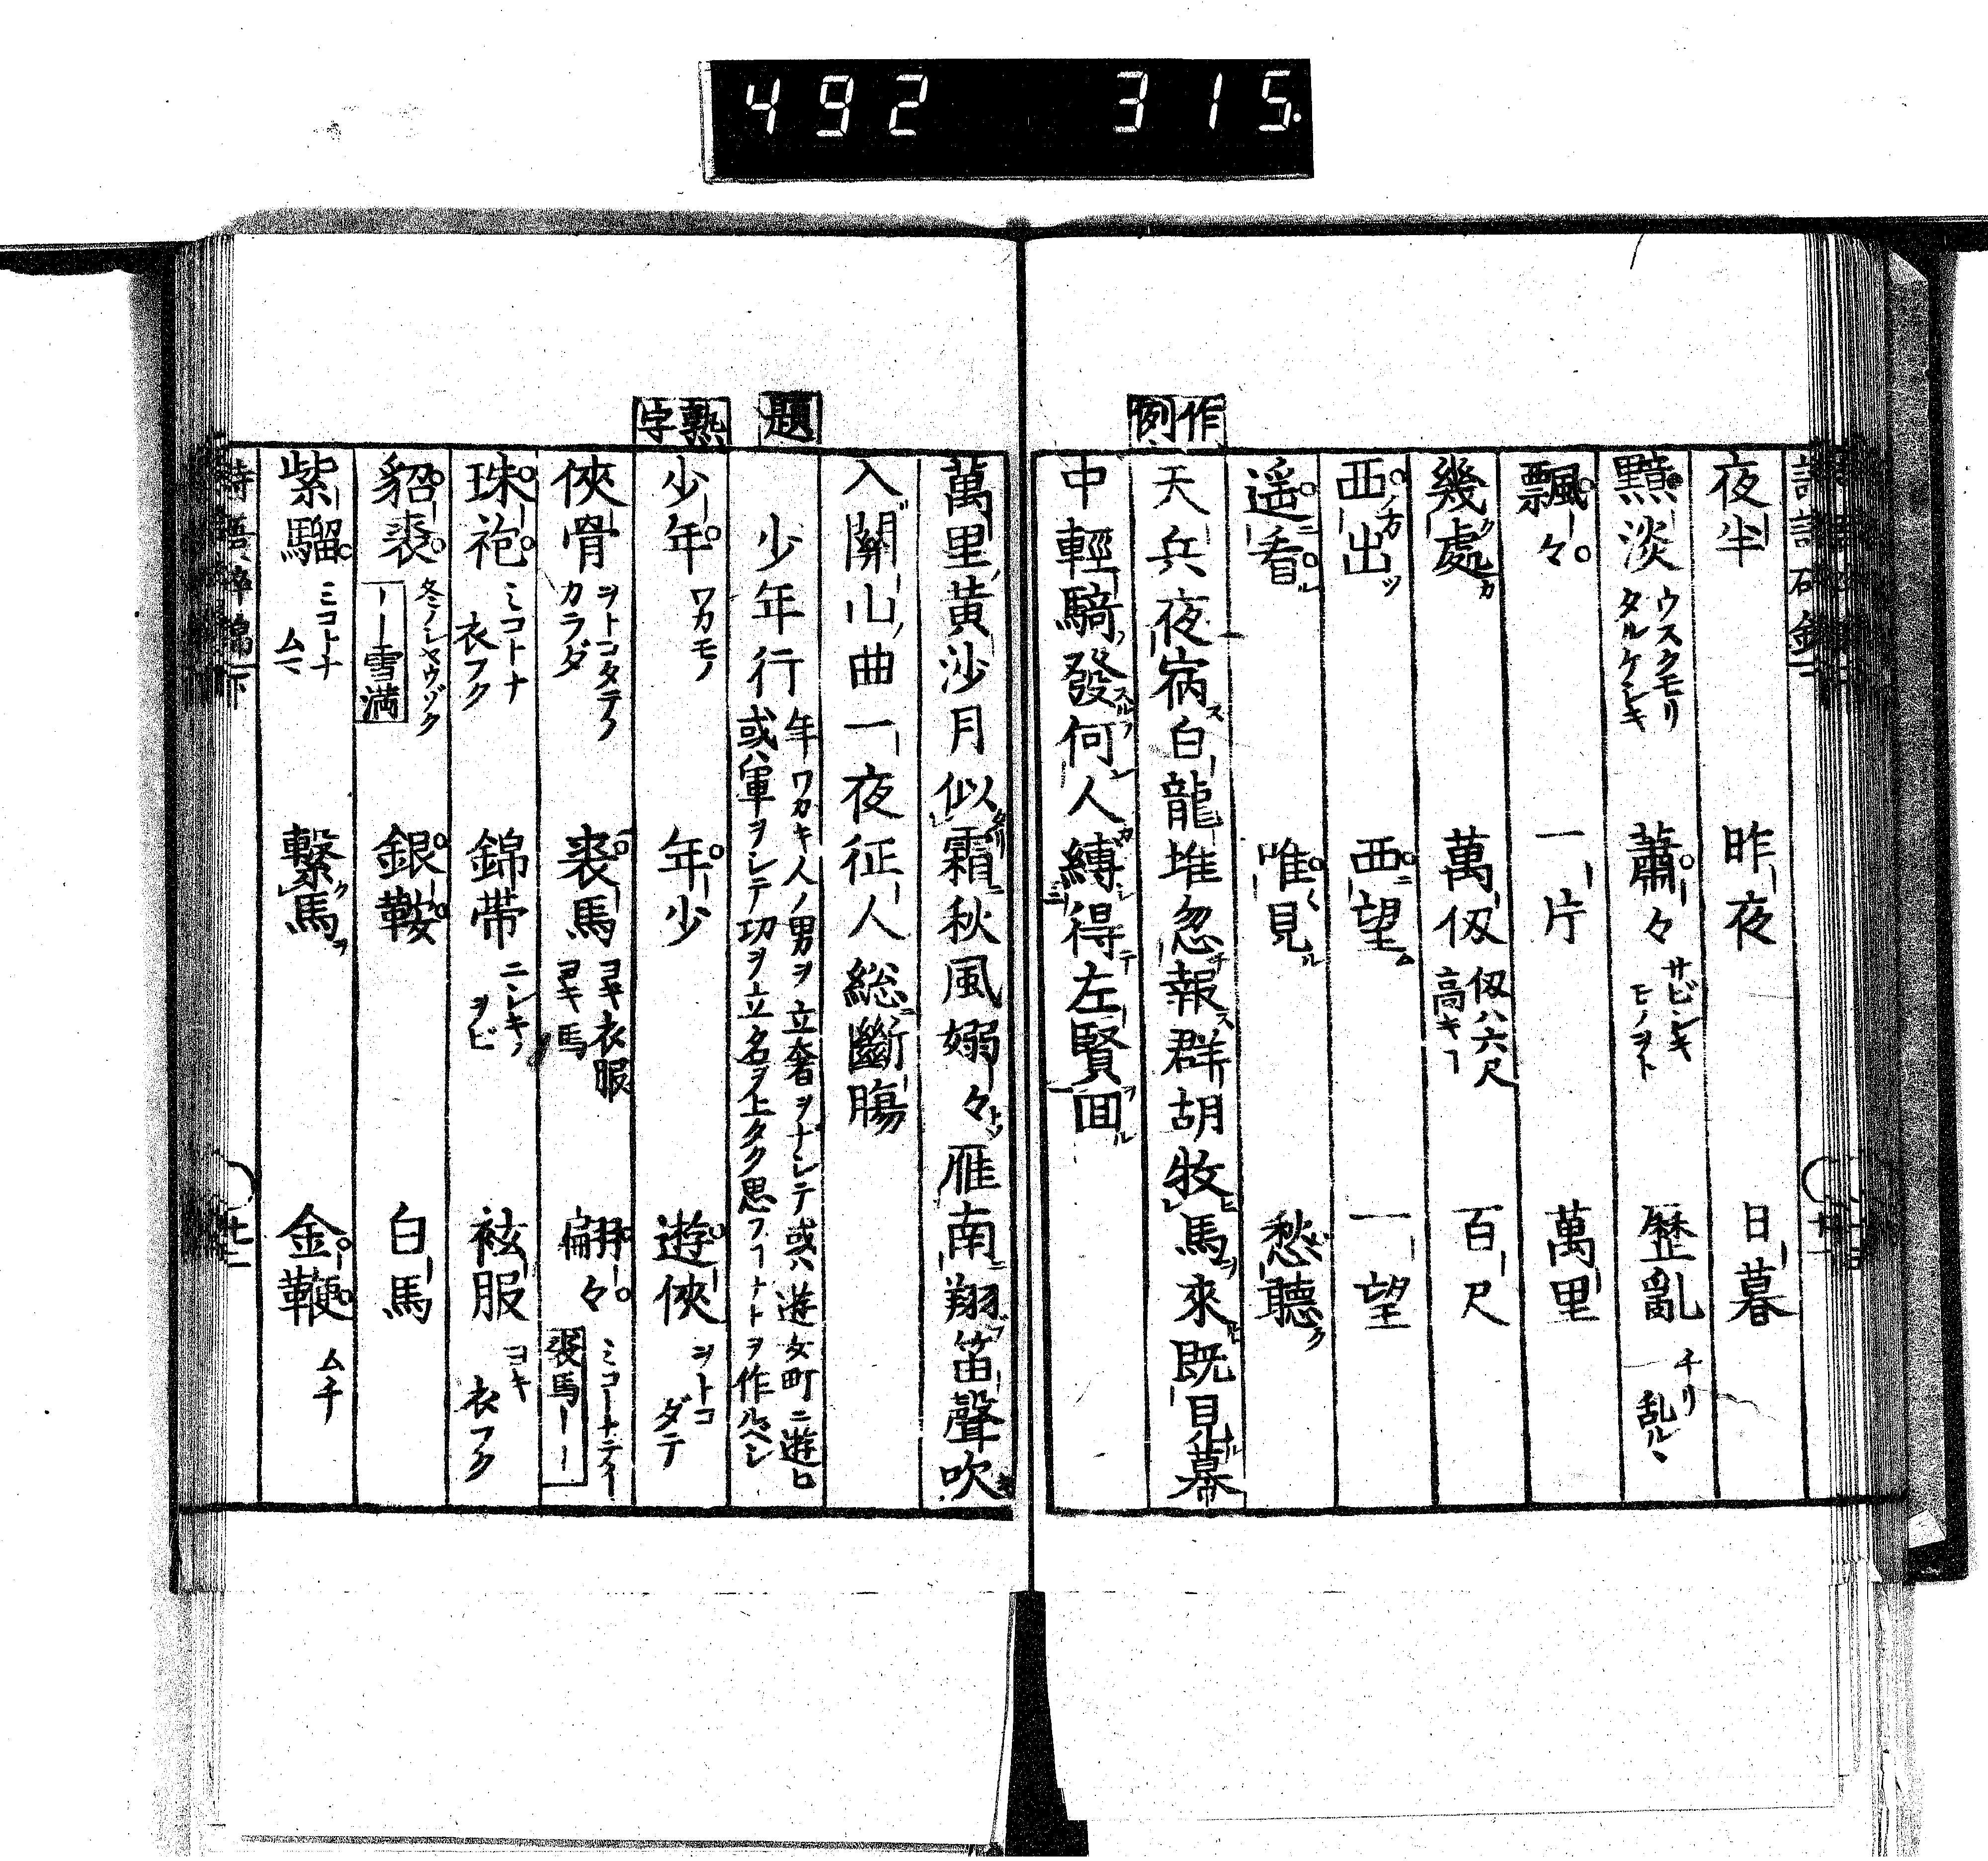 492 315.
夜半 昨夜 日暮
黯淡 ウスクモリ タルケシキ 蕭々 サビシキ モノヲト 歴亂 チリ 乱ルヽ
飄々 一片 萬里
幾處 萬仭 仭ハ六尺 高キヿ 百尺
西出 西望 一望
遥看 唯見 愁聽
作例
天兵夜宿白龍堆忽報群胡牧馬來既見幕
中輕騎發何人縛得左賢回
萬里黄沙月似霜秋風嫋々雁南翔笛聲吹
入關山曲一夜征人総斷腸
題
少年行 年ワカキ人ノ男ヲ立奢ヲナシテ或ハ遊女町ニ遊ヒ
或ハ軍ヲシテ功ヲ立名ヲ上タク思フヿナトヲ作ルヘシ
熟字
少年 ワカモノ 年少 遊俠 ヲトコ ダテ
俠骨 ヲトコタテノ カラダ 裘馬 ヨキ衣服 ヨキ馬 翩々 裘馬ーー
珠袍 ミコトナ 衣フク 錦帯 ニシキノ ヲビ 袨服 ヨキ 衣フク
貂裘 冬ノシヤウゾク ーー雪満 銀鞍 白馬
紫騮 ミコトナ ムマ 繋馬 金鞭 ムチ